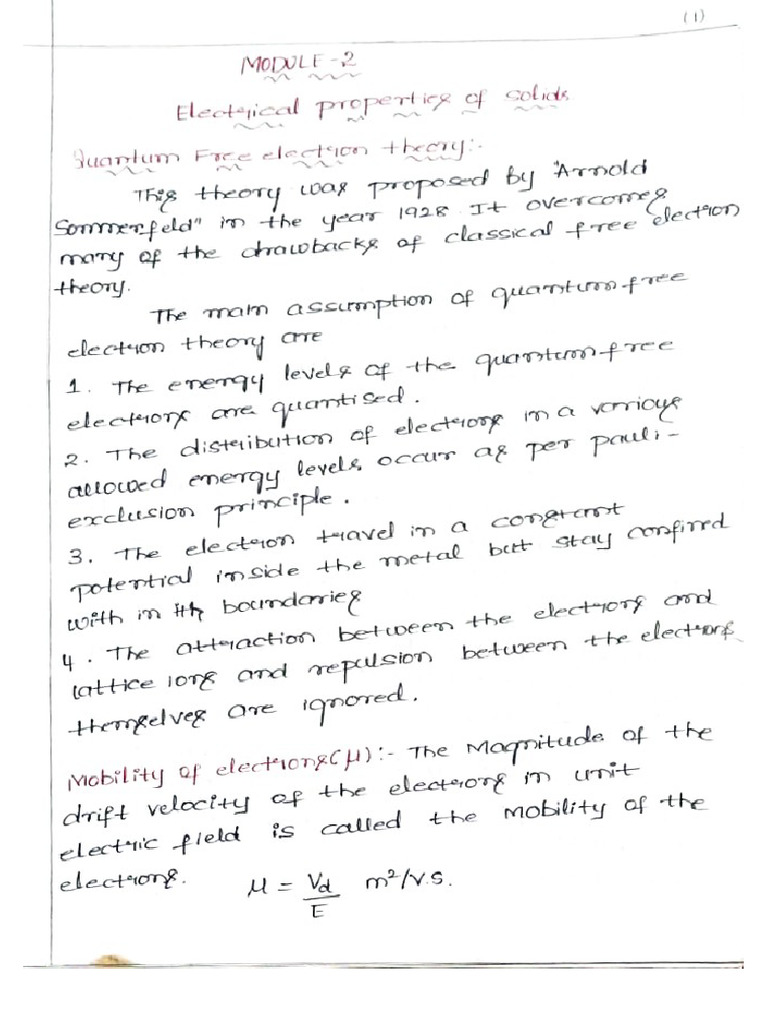 (1)
MODULE-2
Electrical properties of solids
Quantum Free election theory:-
This theory was proposed by "Arnold
Sommerfeld" in the year 1928 It overcomes
many of the drawbacks of classical free electron
theory.
The main assumption of quantum free
electron theory are
1. The energy levels of the quantum free
electrons are quantised.
2. The distribution of electrons in a various
allowed energy levels occur as per pauli-
exclusion principle.
3. The electron travel in a constant
potential inside the metal but stay confined
with in its boundaries
4. The attraction between the electrons and
lattice ions and repulsion between the electrons
themselves are ignored.
Mobility of electrons(μ):- The Magnitude of the
drift velocity of the electrons in unit
electric field is called the mobility of the
electrons.
μ = Vd/E m²/V.S.